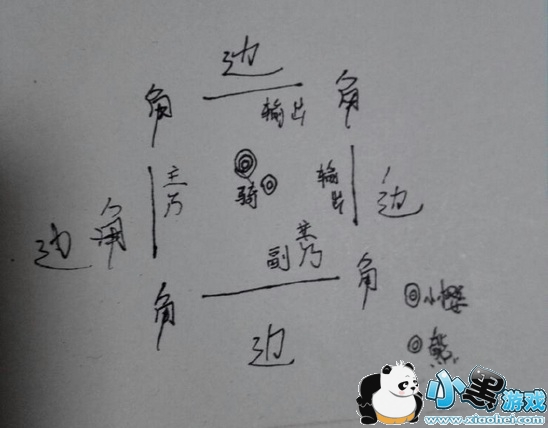 边
角 角
输出
主乃
骑
输出
边
边 角
副主乃
角 角
边
小樱
熊
小黑游戏
www.xiaohei.com